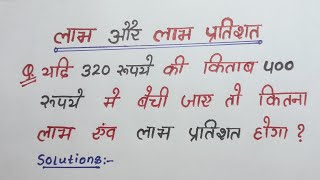 लाभ और लाभ प्रतिशत
Q. यदि 320 रूपये की किताब ५००
रूपये मे बेची जाए तो कितना
लाभ एंव लाभ प्रतिशत होगा ?
Solutions:-